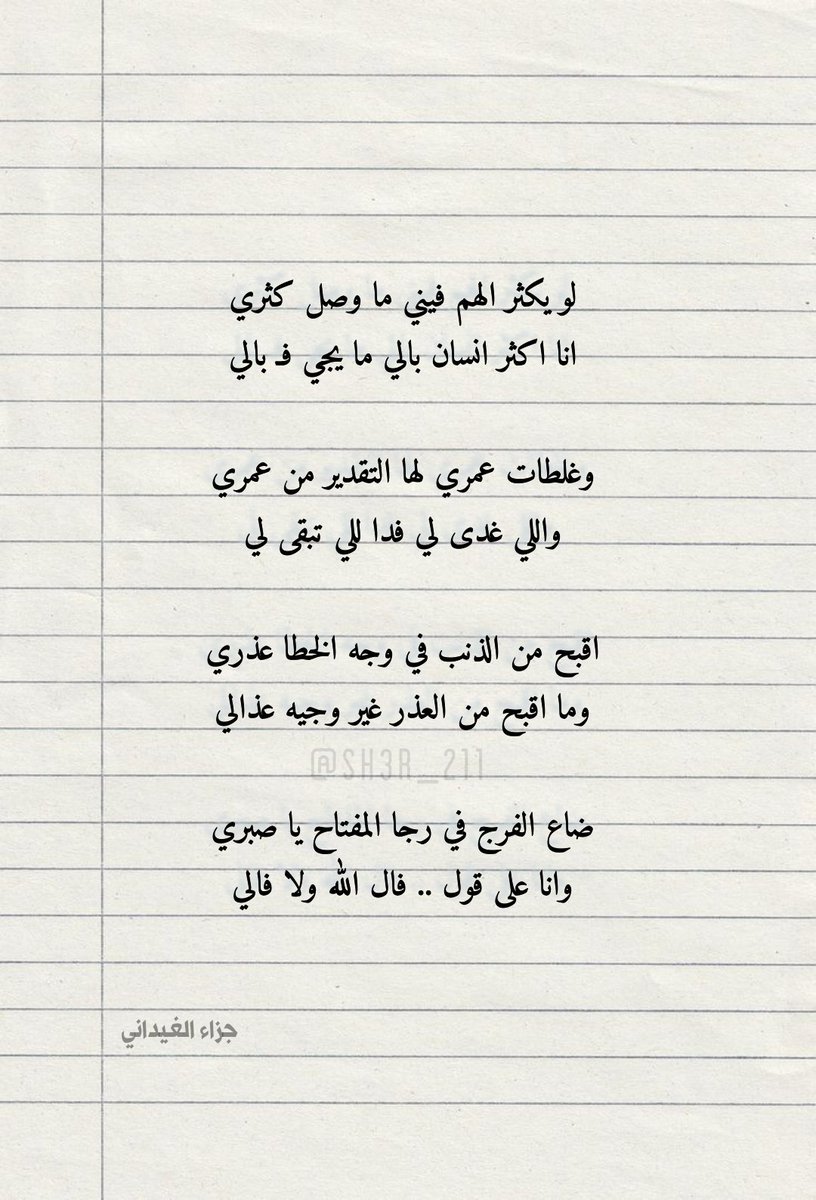 لو يكثر الهم فيني ما وصل كثري
انا اكثر انسان بالي ما يجي فـ بالي
وغلطات عمري لها التقدير من عمري
واللي غدى لي فدا للي تبقى لي
اقبح من الذنب في وجه الخطا عذري
وما اقبح من العذر غير وجيه عذالي
@SH3R_211
ضاع الفرج في رجا المفتاح يا صبري
وانا على قول .. فال الله ولا فالي
جزاء الغيداني